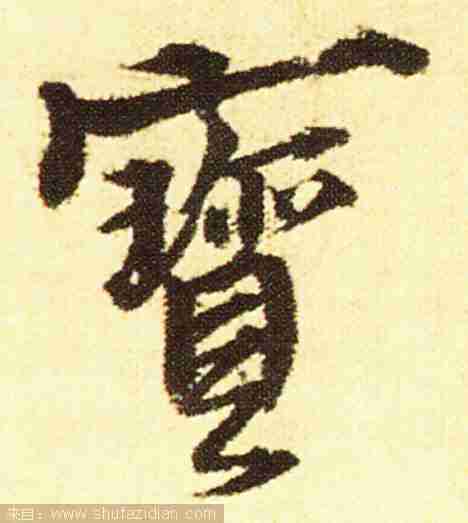 寶
来自：www.shufazidian.com